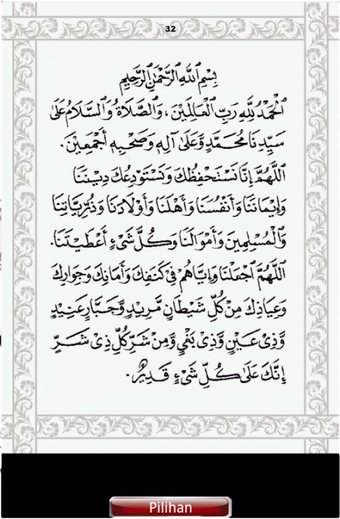 32
بِسْمِ اللَّهِ الرَّحْمٰنِ الرَّحِيْمِ
اَلْحَمْدُ لِلّٰهِ رَبِّ الْعَالَمِيْنَ، وَالصَّلَاةُ وَالسَّلَامُ عَلَى
سَيِّدِنَا مُحَمَّدٍ وَّعَلَى آلِهِ وَصَحْبِهِ أَجْمَعِيْنَ.
اَللَّهُمَّ إِنَّا نَسْتَحْفِظُكَ وَنَسْتَوْدِعُكَ دِيْنَنَا
وَإِيْمَانَنَا وَأَنْفُسَنَا وَأَهْلَنَا وَأَوْلَادَنَا وَذُرِّيَّاتِنَا
وَالْمُسْلِمِيْنَ وَأَمْوَالَنَا وَكُلَّ شَيْءٍ أَعْطَيْتَنَا.
اَللَّهُمَّ اجْعَلْنَا وَإِيَّاهُمْ فِيْ كَنَفِكَ وَأَمَانِكَ وَجِوَارِكَ
وَعِيَاذِكَ مِنْ كُلِّ شَيْطَانٍ مَّرِيْدٍ وَّجَبَّارٍ عَنِيْدٍ
وَّذِيْ عَيْنٍ وَّذِيْ بَغْيٍ وَّمِنْ شَرِّ كُلِّ ذِيْ شَرٍّ
إِنَّكَ عَلَى كُلِّ شَيْءٍ قَدِيْرٌ.
Pilihan